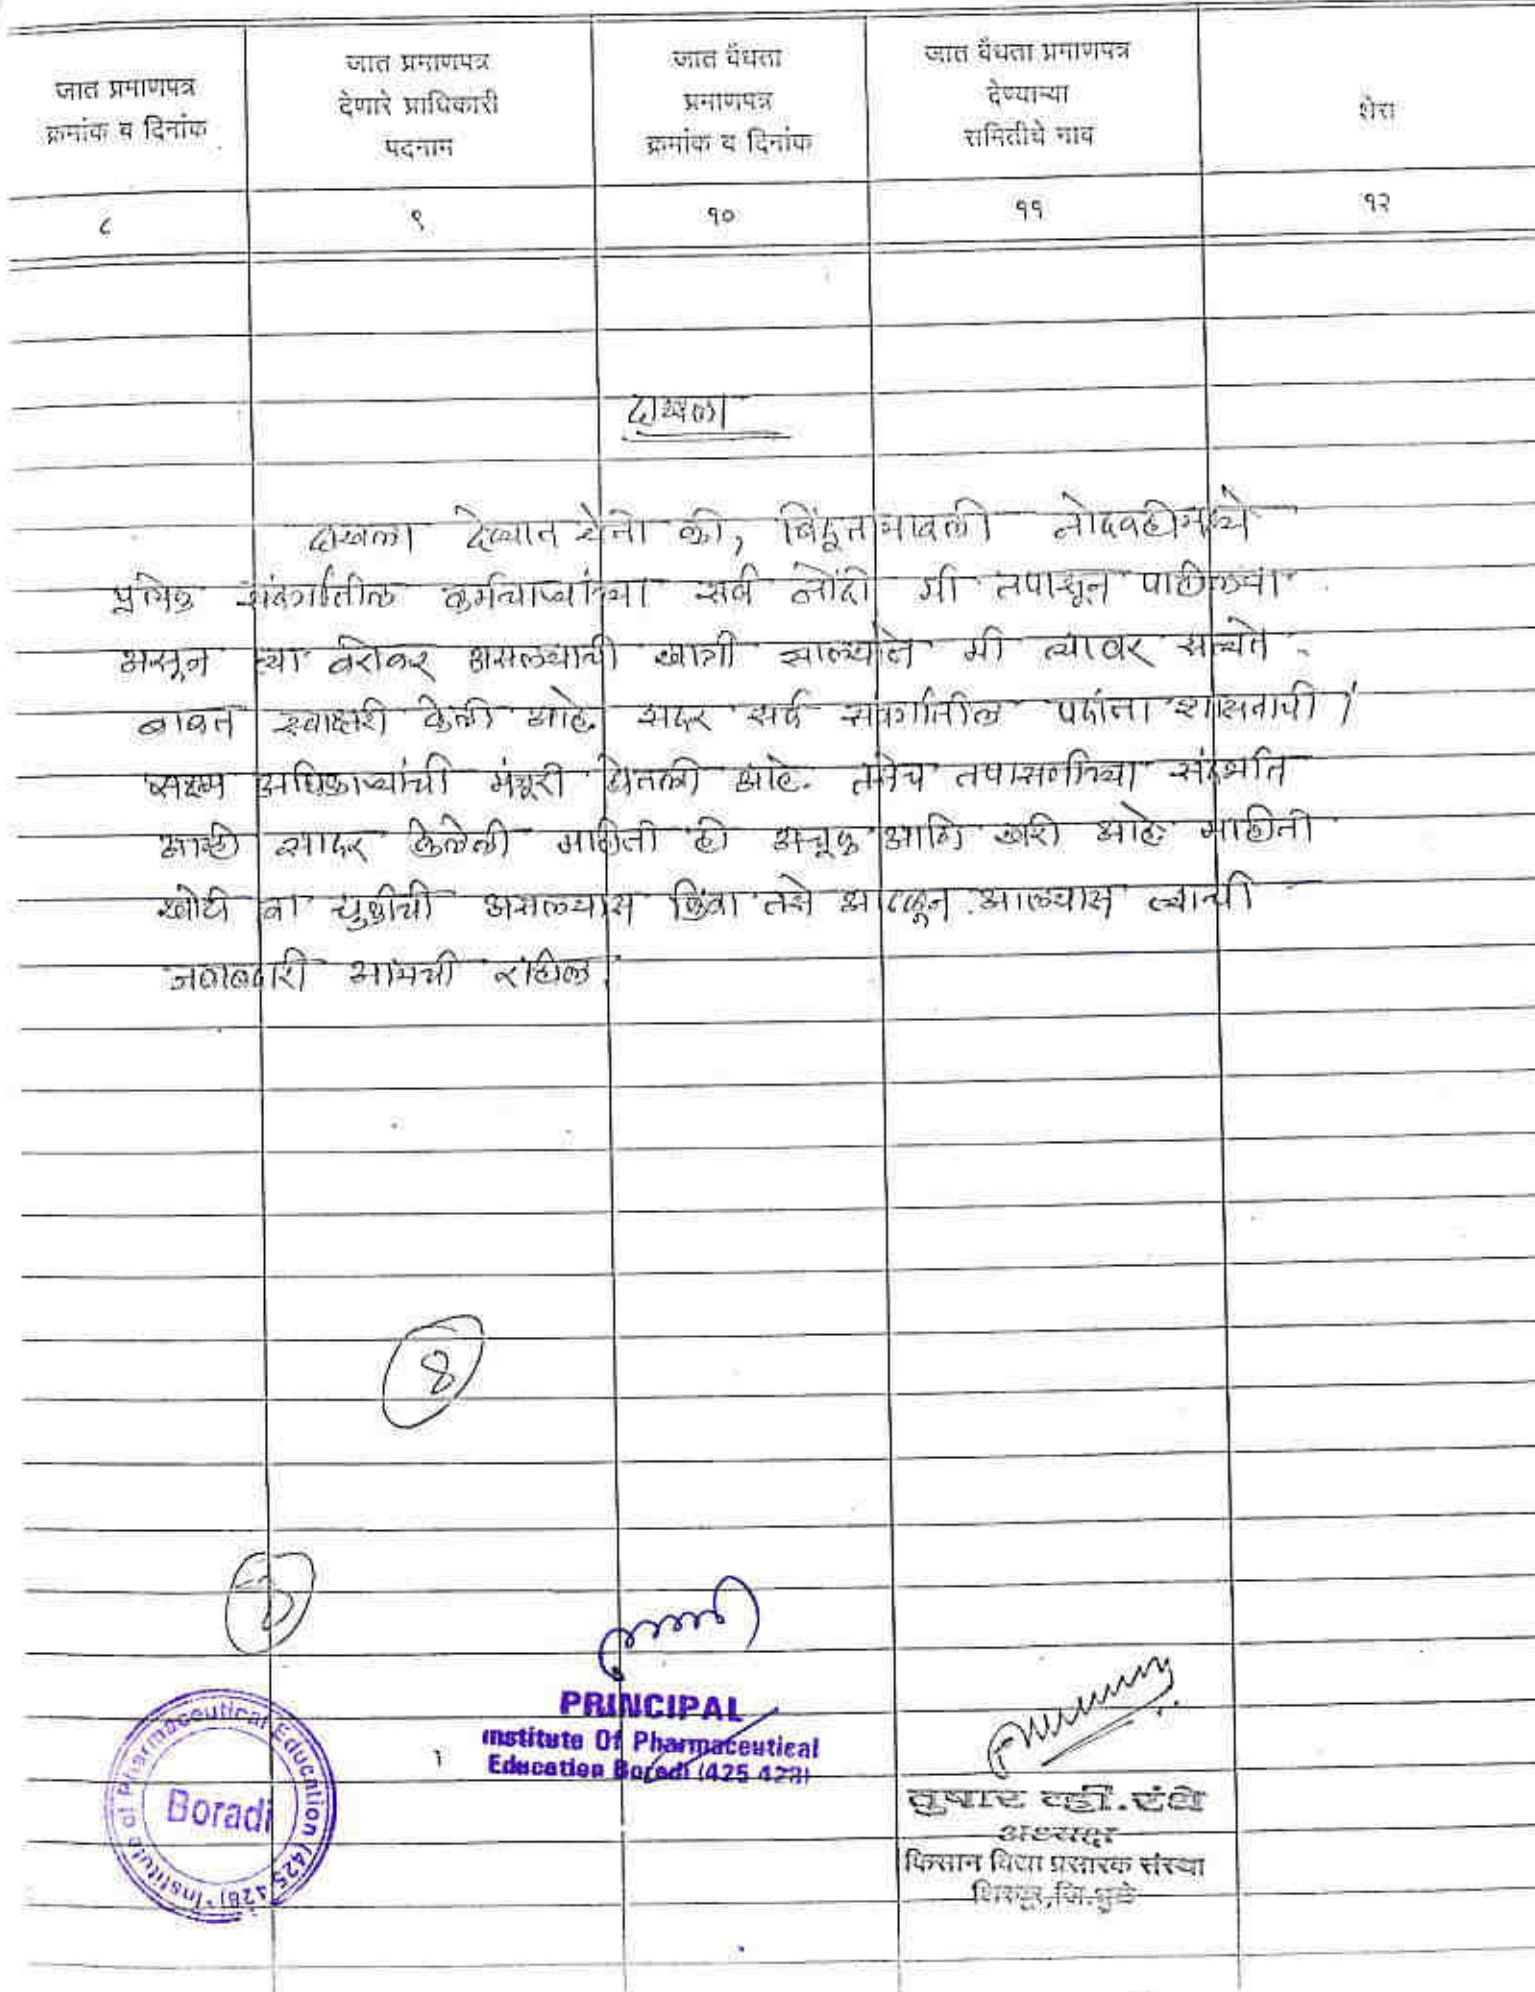 जात प्रमाणपत्र
क्रमांक व दिनांक
जात प्रमाणपत्र
देणारे प्राधिकारी
पदनाम
जात वैधता
प्रमाणपत्र
क्रमांक व दिनांक
जात वैधता प्रमाणपत्र
देण्याऱ्या
समितीचे नाव
शेरा
८ ९ १० ११ १२
दाखला
दाखला देण्यात येतो की, बिंदूनामावली नोंदवहीमध्ये
प्रत्येक संवर्गातील कर्मचाऱ्यांच्या सर्व नोंदी मी तपासून पाहील्या
असून त्या बरोबर असल्याची खात्री झाल्याने मी त्यावर सत्यते
बाबत स्वाक्षरी केली आहे. सदर सर्व संवर्गातील पदांना शासनाची /
सक्षम अधिकाऱ्यांची मंजूरी घेतली आहे. तसेच तपासणीच्या संदर्भात
आम्ही सादर केलेली माहिती ही अचूक आणि खरी आहे माहीती
खोटी वा चुकीची असल्यास किंवा तसे आढळून आल्यास त्याची
जबाबदारी आमची राहील.
8
PRINCIPAL
Institute Of Pharmaceutical
Education Boradi (425 428)
Institute of Pharmaceutical Education (425 428)
Boradi
तुषार व्ही. रंधे
अध्यक्ष
किसान विद्या प्रसारक संस्था
शिरपूर, जि. धुळे